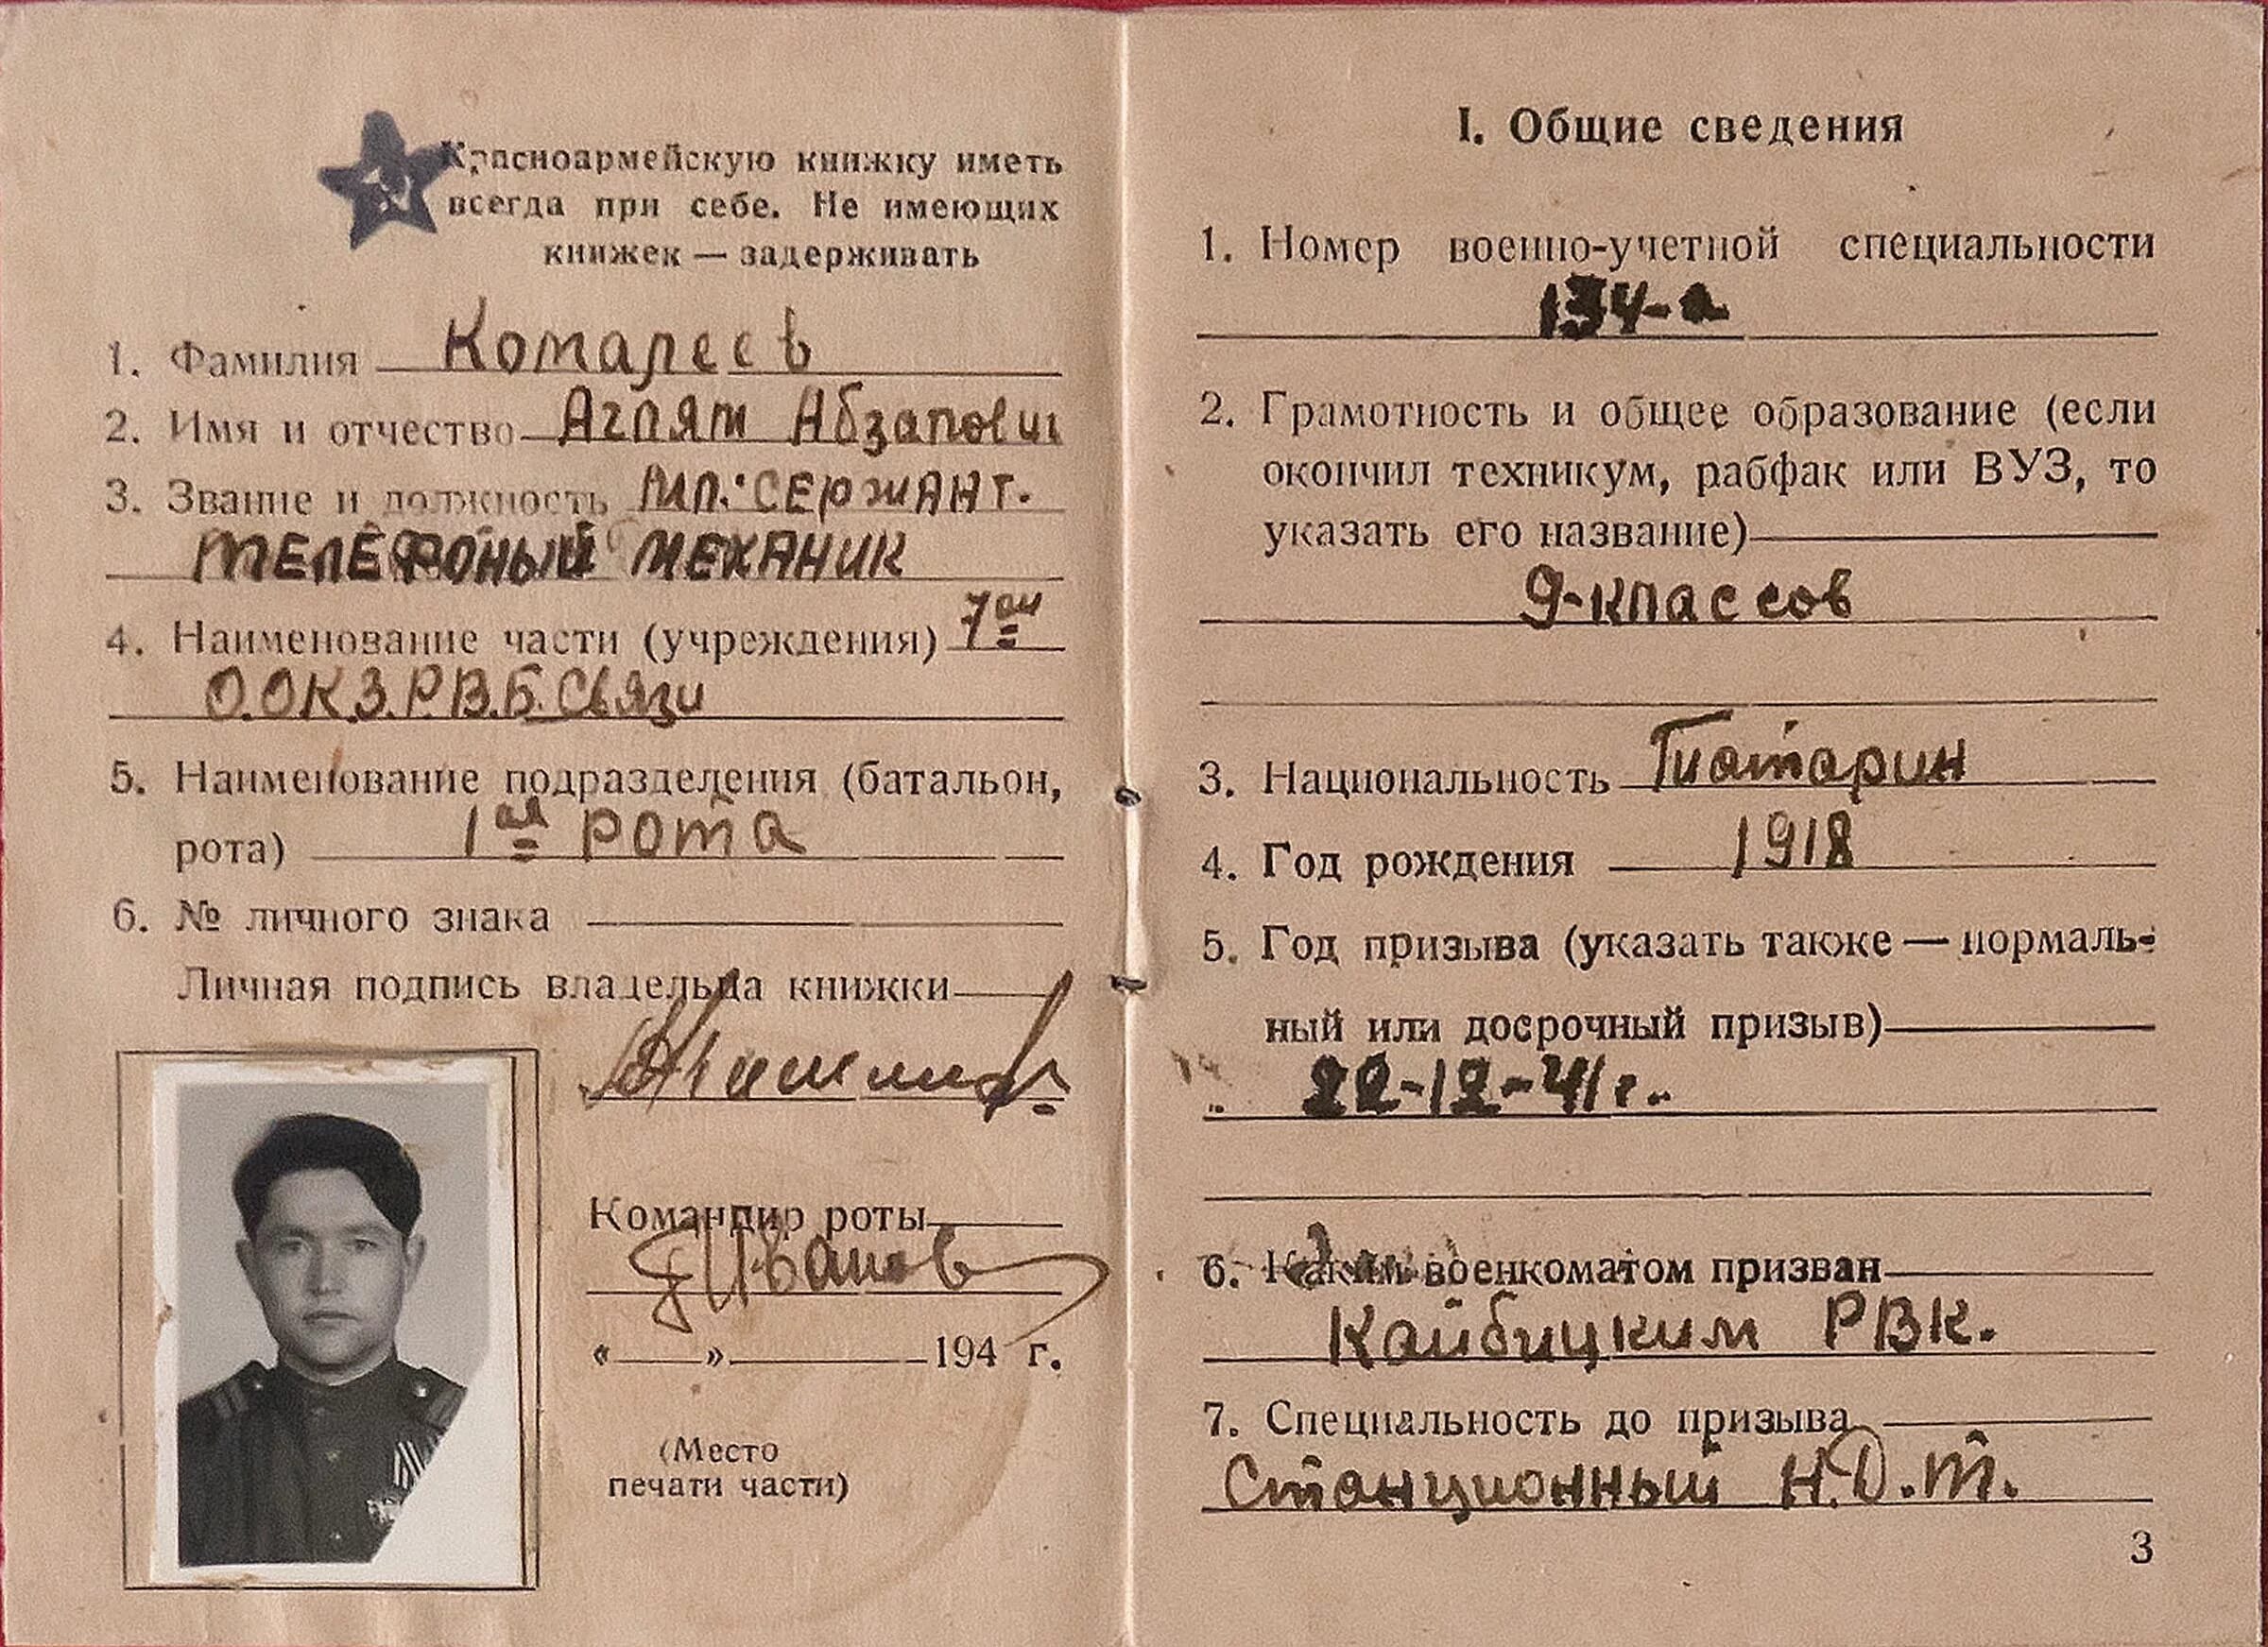 Красноармейскую книжку иметь
всегда при себе. Не имеющих
книжек — задерживать
1. Фамилия Комалеев
2. Имя и отчество Аглям Абзалович
3. Звание и должность мл. сержант.
телефоный механик
4. Наименование части (учреждения) 7ой
О.ОКЗ.Р.В.Б. Связи
5. Наименование подразделения (батальон,
рота) 1ая рота
6. № личного знака
Личная подпись владельца книжки
Командир роты
Иванов
« » 194 г.
(Место
печати части)
I. Общие сведения
1. Номер военно-учетной специальности
134-а
2. Грамотность и общее образование (если
окончил техникум, рабфак или ВУЗ, то
указать его название)
9-классов
3. Национальность Татарин
4. Год рождения 1918
5. Год призыва (указать также — нормаль-
ный или досрочный призыв)
22-12-41г.
6. Каким военкоматом призван
Кайбицким РВК.
7. Специальность до призыва
Станционный Н.Д.т.
3